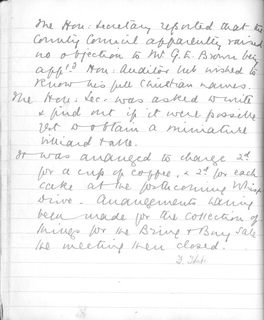 The Hon: Secretary reported that the
County Council apparently raised
no objection to Mr G. E. Brown being
appd Hon: Auditor but wished to
know his full Christian names.
The Hon: Sec. was asked to write
& find out if it were possible
yet to obtain a miniature
billiard table.
It was arranged to charge 2d
for a cup of coffee, & 2d for each
cake at the forthcoming Whist
Drive. Arrangements having
been made for the collection of
things for the Bring & Buy Sale
the meeting then closed.